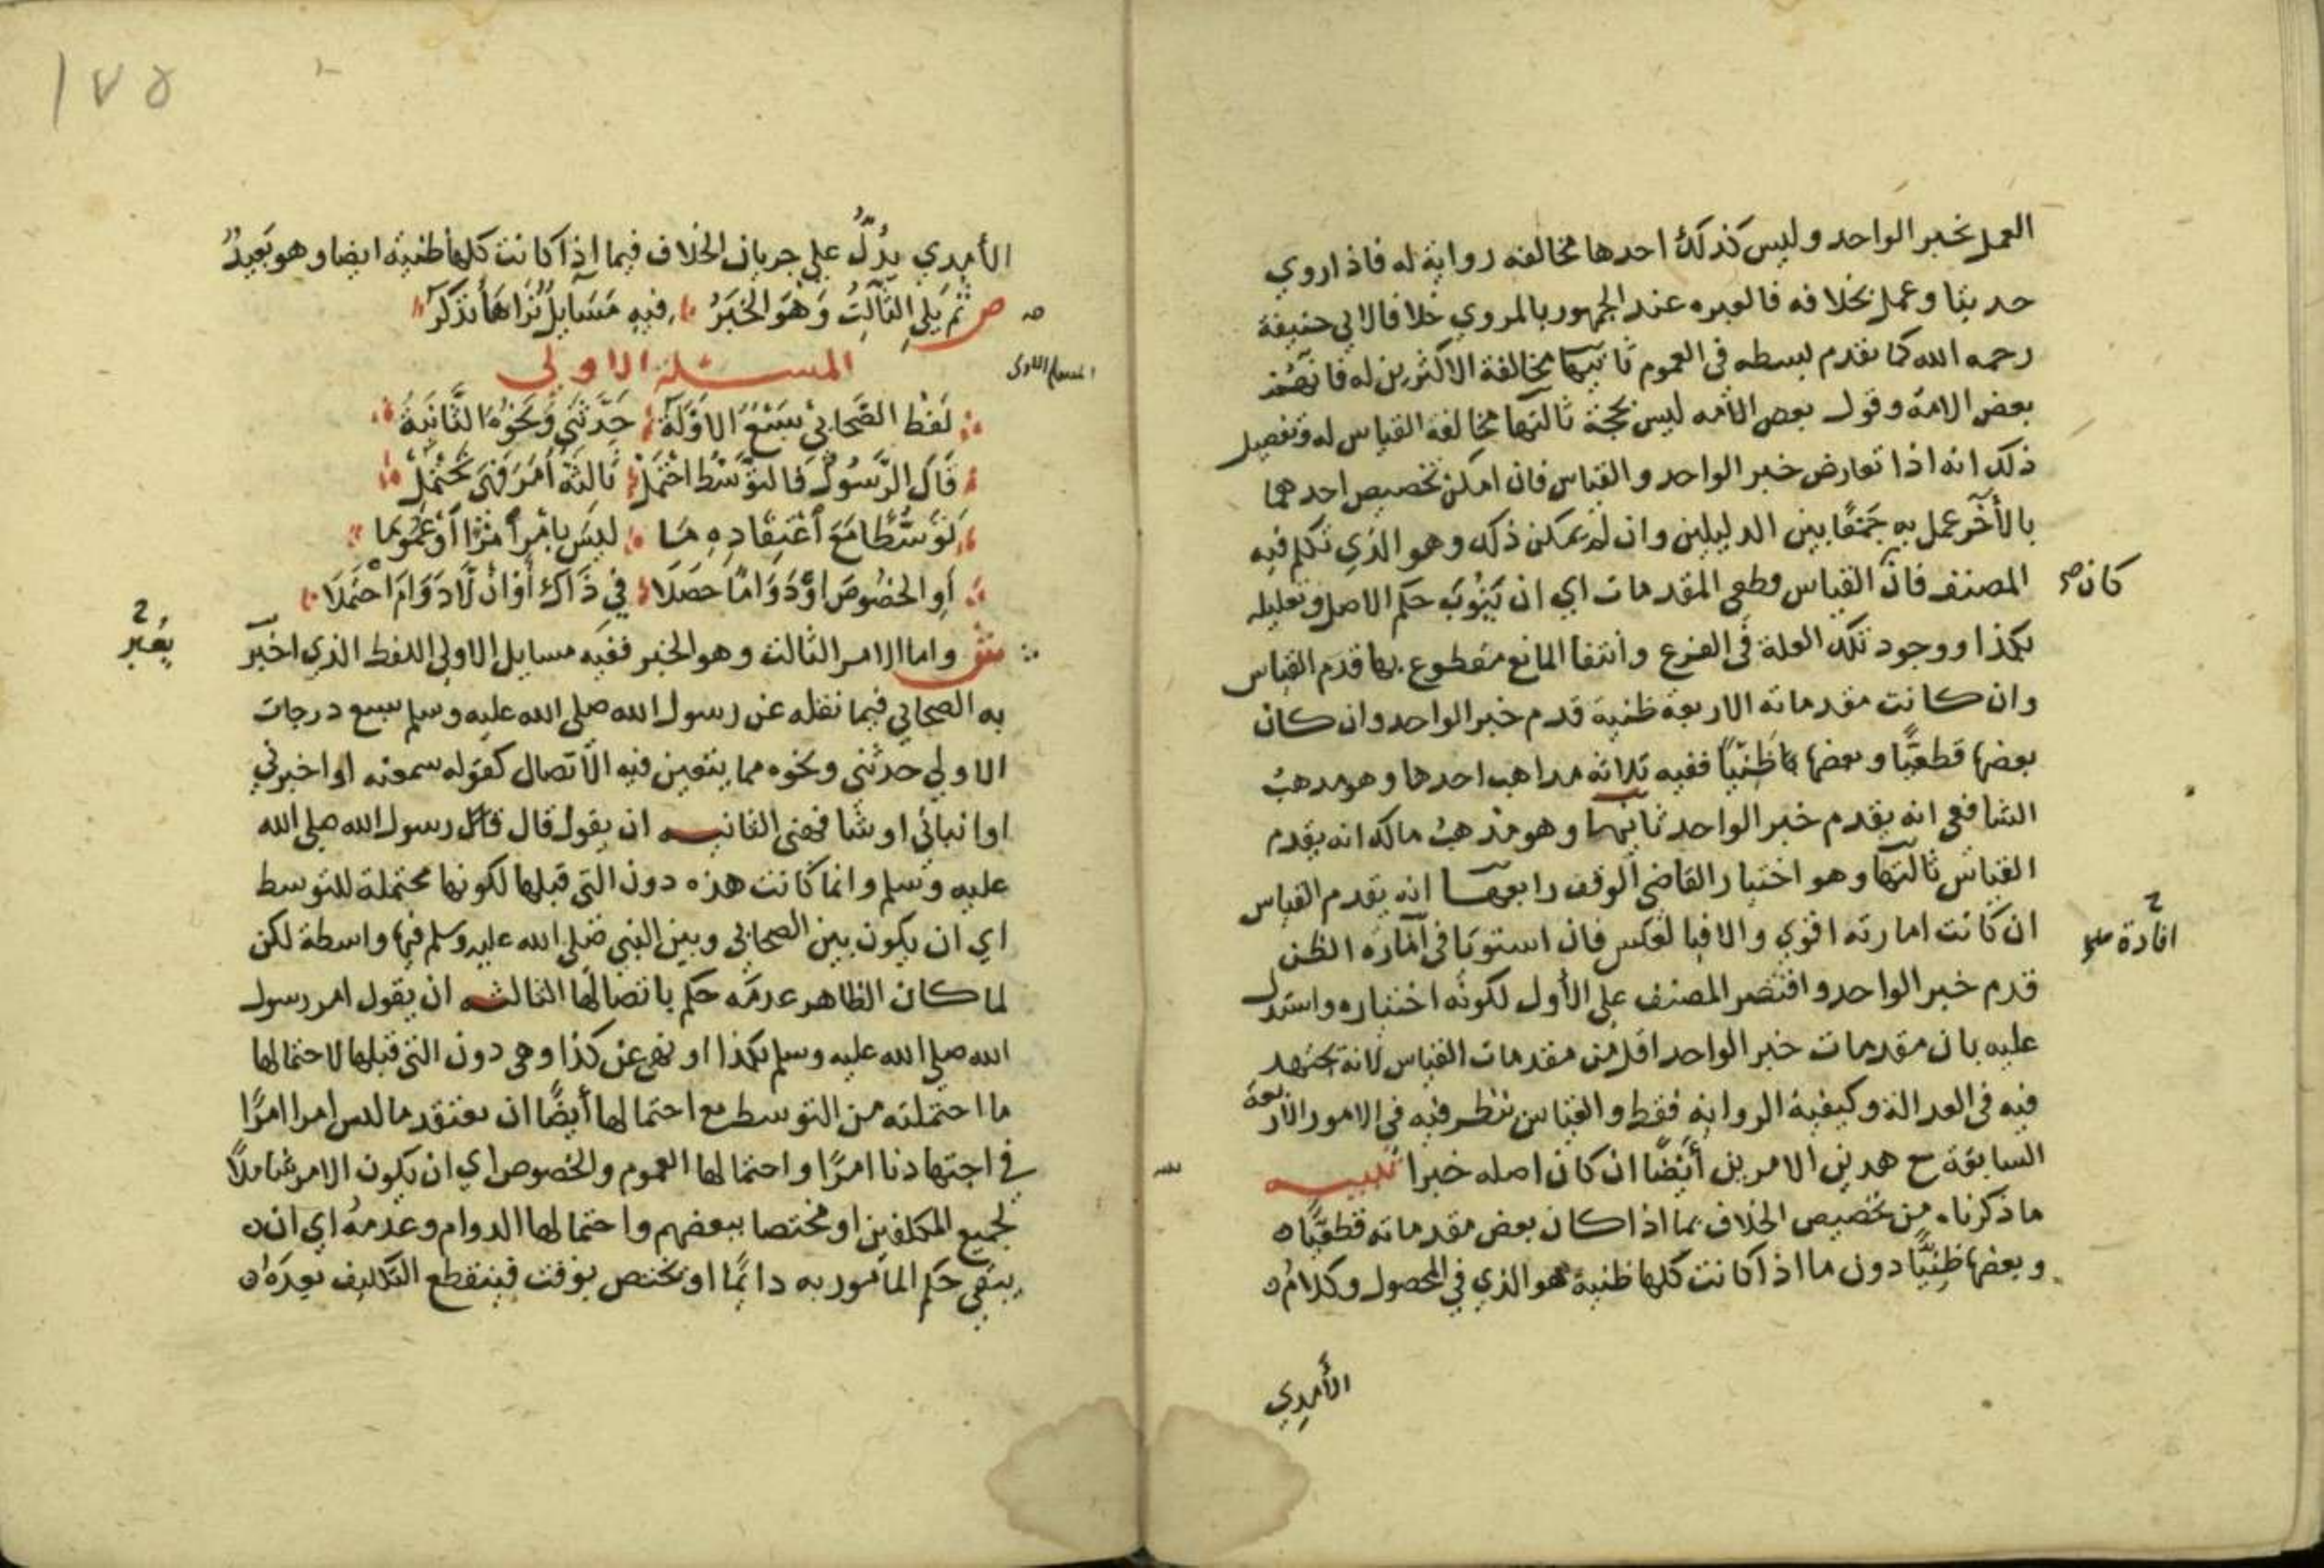 العمل بخبر الواحد وليس كذلك احدها مخالفه رواية له فاذا روي
حديثا وعمل بخلافه فالعبره عند الجمهور بالمروي خلافا لابي حنيفة
رحمه الله كما تقدم بسطه في العموم ثانيها مخالفة الاكثرين له فانهم
بعض الامة وقول بعض الامه ليس بحجة ثالثها مخالفة القياس له وتفصيل
ذلك انه اذا تعارض خبر الواحد والقياس فان امكن تخصيص احدهما
بالأخر عمل به جمعًا بين الدليلين وان لم يمكن ذلك وهو الذي تكلم فيه
المصنف فان القياس قطعي المقدمات اي ان ثبوت حكم الاصل وتعليله
كان صح
بكذا ووجود تلك العلة في الفرع وانتفا المانع مقطوع بها قدم القياس
وان كانت مقدماته الاربعة ظنية قدم خبر الواحد وان كان
بعضها قطعيًّا وبعضها ظنيًّا ففيه ثلاثه مذاهب احدها وهو مذهب
الشافعي انه يقدم خبر الواحد ثانيها وهو مذهب مالك انه يقدم
القياس ثالثها وهو اختيار القاضي الوقف رابعها انه يقدم القياس
ان كانت امارته اقوي والا فبالعكس فان استوتا في اماره الظن
افادة
قدم خبر الواحد واقتصر المصنف علي الأول لكونه اختياره واستدل
عليه بان مقدمات خبر الواحد اقل من مقدمات القياس لانه يجتهد
فيه في العدالة وكيفية الروايه فقط والقياس ينظر فيه في الامور الاربعة
السابقة مع هذين الامرين أيضًا ان كان اصله خبرا تنبيه
ما ذكرناه من تخصيص الخلاف بما اذا كان بعض مقدماته قطعيًّا
وبعضها ظنيًّا دون ما اذا كانت كلها ظنية هو الذي في المحصول وكلام
الأمدي
١٧٥
الأمدي يدُلّ علي جريان الخلاف فيما اذا كانت كلها ظنية ايضا وهو بَعيدٌ
ص ثُم يلي الثالث وَهْوَ الخبَرُ فيه مَسَايِلٌ نَراهَا تذكر
المسئلة الاولي
المسئلة الاولى
لَفْظ الصَّحابيِّ سَبْعٌ الاوّلَة حَدَّثَني وَنَحْوُهُ الثَّانِيَةُ
قَالَ الرَّسُولُ فَالتوَسُّط احْتَمَلْ ثالِثَة أمَرَ وَنَهَى يَحْتَمِلُ
تَوَسُّطًا مَعَ اعْتِقَادِهِ مَا ليسَ بامْرٍ أمْرًا أوْ عُمُومَا
أوِ الخُصُوصَ أوْ دَوَامًا حَصَلَا في ذَاكَ أوْ أنْ لَا دَوَامَ احْتَمَلَا
ش واما الامر الثالث وهو الخبر ففيه مسايل الاولي اللفظ الذي اخبر
يعبر
به الصحابي فيما نقله عن رسول الله صلي الله عليه وسلم سبع درجات
الاولي حدثني ونحوه مما يتعين فيه الاتصال كقوله سمعته او اخبرني
او انبائي او شافهني الثانيه ان يقول قال رسول الله صلي الله
عليه وسلم وانما كانت هذه دون التي قبلها لكونها محتملة للتوسط
اي ان يكون بين الصحابي وبين النبي صلي الله عليه وسلم فيها واسطة لكن
لما كان الظاهر عدمَه حكم باتصالها الثالثه ان يقول امر رسول
الله صلي الله عليه وسلم بكذا او نهي عن كذا وهي دون التي قبلها لاحتمالها
ما احتملته من التوسط مع احتمالها أيضًا ان يعتقد ما ليس امرا امرًا
في اجتهادنا امرًا واحتمالها العموم والخصوص اي ان يكون الامر شاملًا
لجميع المكلفين او مختصا ببعضهم واحتمالها الدوام وعدمه اي ان
يبقي حكم المأمور به دائمًا او يختص بوقت فينقطع التكليف بعده